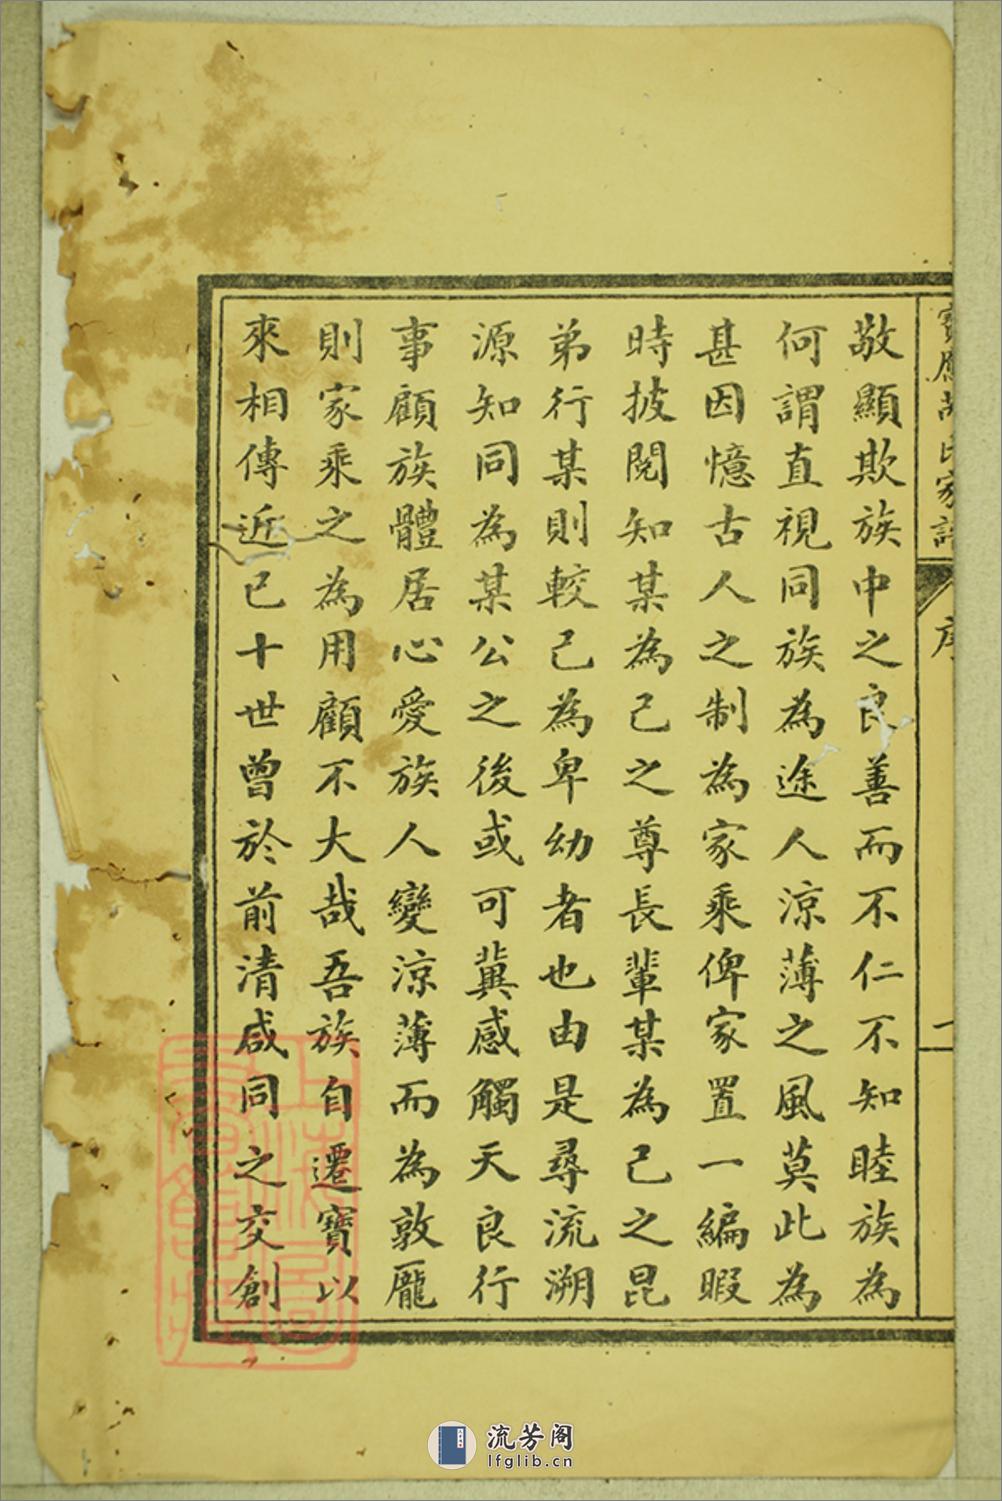 寶應胡氏家譜
序
一
敬顯欺族中之良善而不仁不知睦族為
何謂直視同族為途人涼薄之風莫此為
甚因憶古人之制為家乘俾家置一編暇
時披閱知某為己之尊長輩某為己之昆
弟行某則較己為卑幼者也由是尋流溯
源知同為某公之後或可冀感觸天良行
事顧族體居心愛族人變涼薄而為敦龐
則家乘之為用顧不大哉吾族自遷寶以
來相傳近已十世曾於前清咸同之交創
上海圖書館藏
流芳阁
lfglib.cn